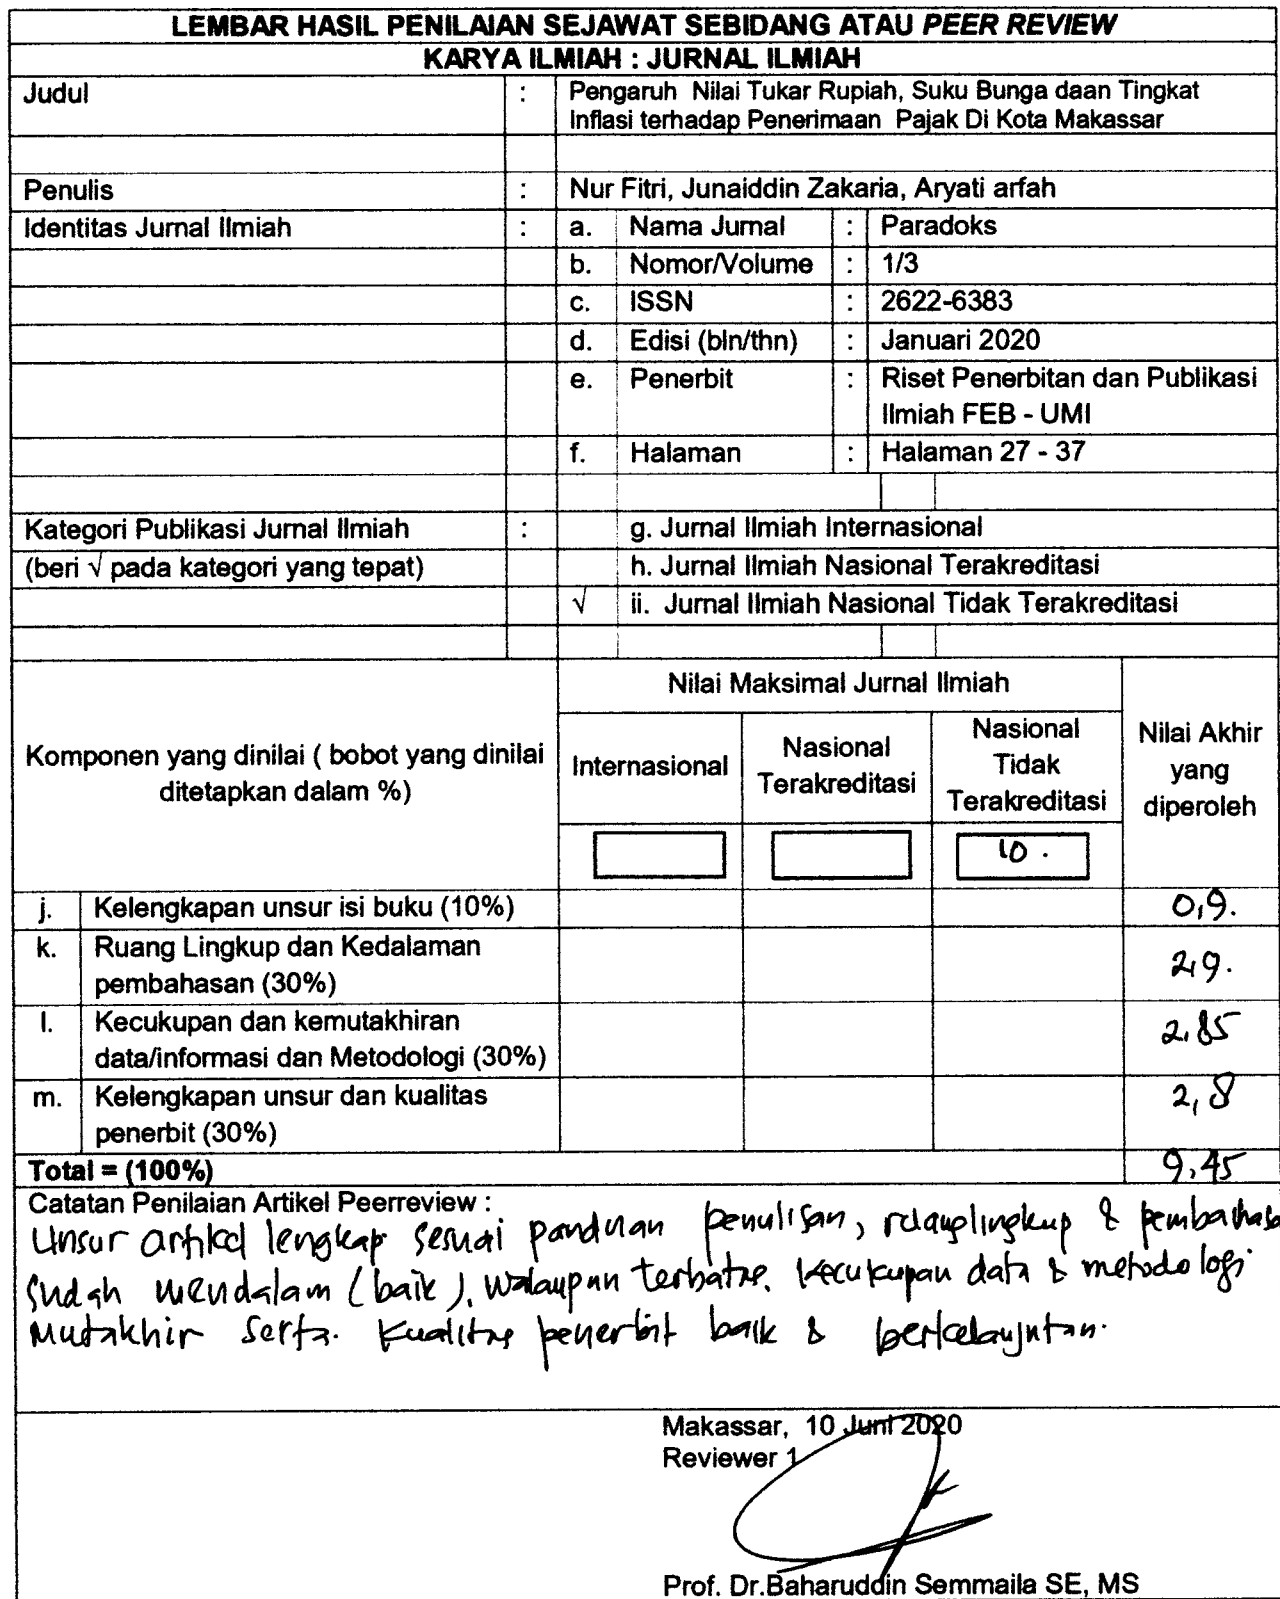 LEMBAR HASIL PENILAIAN SEJAWAT SEBIDANG ATAU PEER REVIEW
KARYA ILMIAH : JURNAL ILMIAH
Judul : Pengaruh Nilai Tukar Rupiah, Suku Bunga daan Tingkat
Inflasi terhadap Penerimaan Pajak Di Kota Makassar
Penulis : Nur Fitri, Junaiddin Zakaria, Aryati arfah
Identitas Jurnal Ilmiah : a. Nama Jurnal : Paradoks
b. Nomor/Volume : 1/3
c. ISSN : 2622-6383
d. Edisi (bln/thn) : Januari 2020
e. Penerbit : Riset Penerbitan dan Publikasi
Ilmiah FEB - UMI
f. Halaman : Halaman 27 - 37
Kategori Publikasi Jurnal Ilmiah : g. Jurnal Ilmiah Internasional
(beri √ pada kategori yang tepat) h. Jurnal Ilmiah Nasional Terakreditasi
√ ii. Jurnal Ilmiah Nasional Tidak Terakreditasi
Komponen yang dinilai ( bobot yang dinilai
ditetapkan dalam %)
Nilai Maksimal Jurnal Ilmiah
Internasional
Nasional
Terakreditasi
Nasional
Tidak
Terakreditasi
Nilai Akhir
yang
diperoleh
10 .
j. Kelengkapan unsur isi buku (10%) 0,9.
k. Ruang Lingkup dan Kedalaman
pembahasan (30%) 2,9.
l. Kecukupan dan kemutakhiran
data/informasi dan Metodologi (30%) 2,85
m. Kelengkapan unsur dan kualitas
penerbit (30%) 2,8
Total = (100%) 9,45
Catatan Penilaian Artikel Peerreview :
Unsur artikel lengkap sesuai panduan penulisan, ruanglingkup & pembahasa
sudah mendalam (baik), walaupun terbatas. Kecukupan data & metodologi
Mutakhir serta. Kualitas penerbit baik & berkelanjutan.
Makassar, 10 Juni 2020
Reviewer 1
Prof. Dr.Baharuddin Semmaila SE, MS